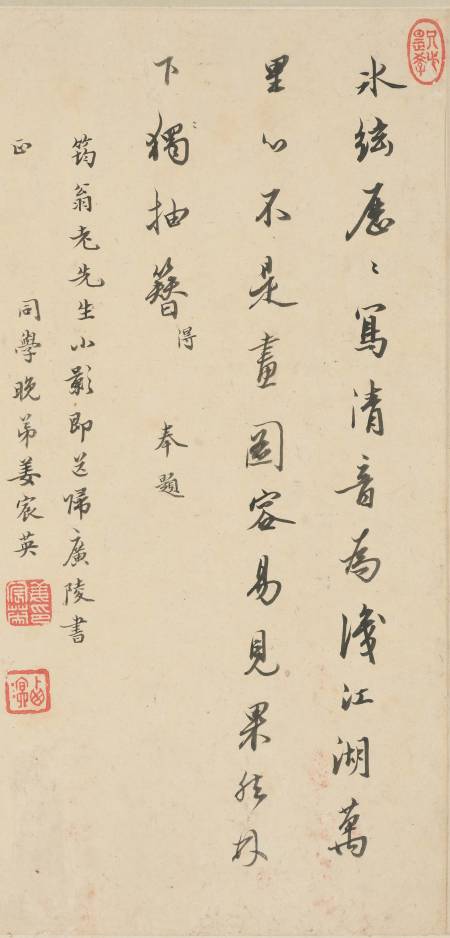 冰絃歷〻寫清音為識江湖萬
里心不是畫圖容易見果然林
下獨抽簪得 奉題
筠翁老先生小影即送歸廣陵書
正 同學晚弟姜宸英
西溟